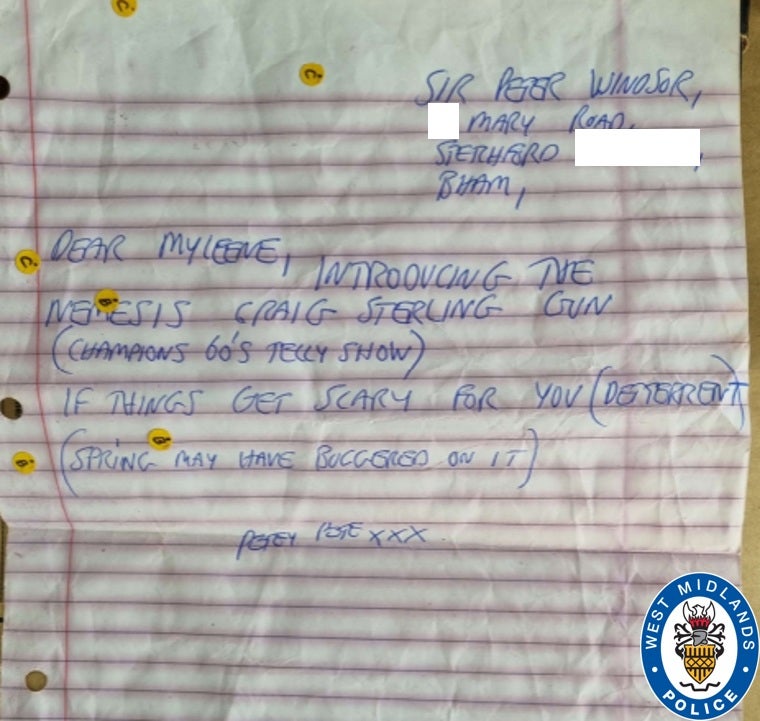 SIR PETER WINDSOR,
MARY ROAD,
STETCHFORD
BHAM,
DEAR MYLEENE, INTRODUCING THE
NEMESIS CRAIG STERLING GUN
(CHAMPIONS 60'S TELLY SHOW)
IF THINGS GET SCARY FOR YOU (DETERRENT)
(SPRING MAY HAVE BUGGERED ON IT)
PETEY PETE XXX
WEST MIDLANDS
POLICE